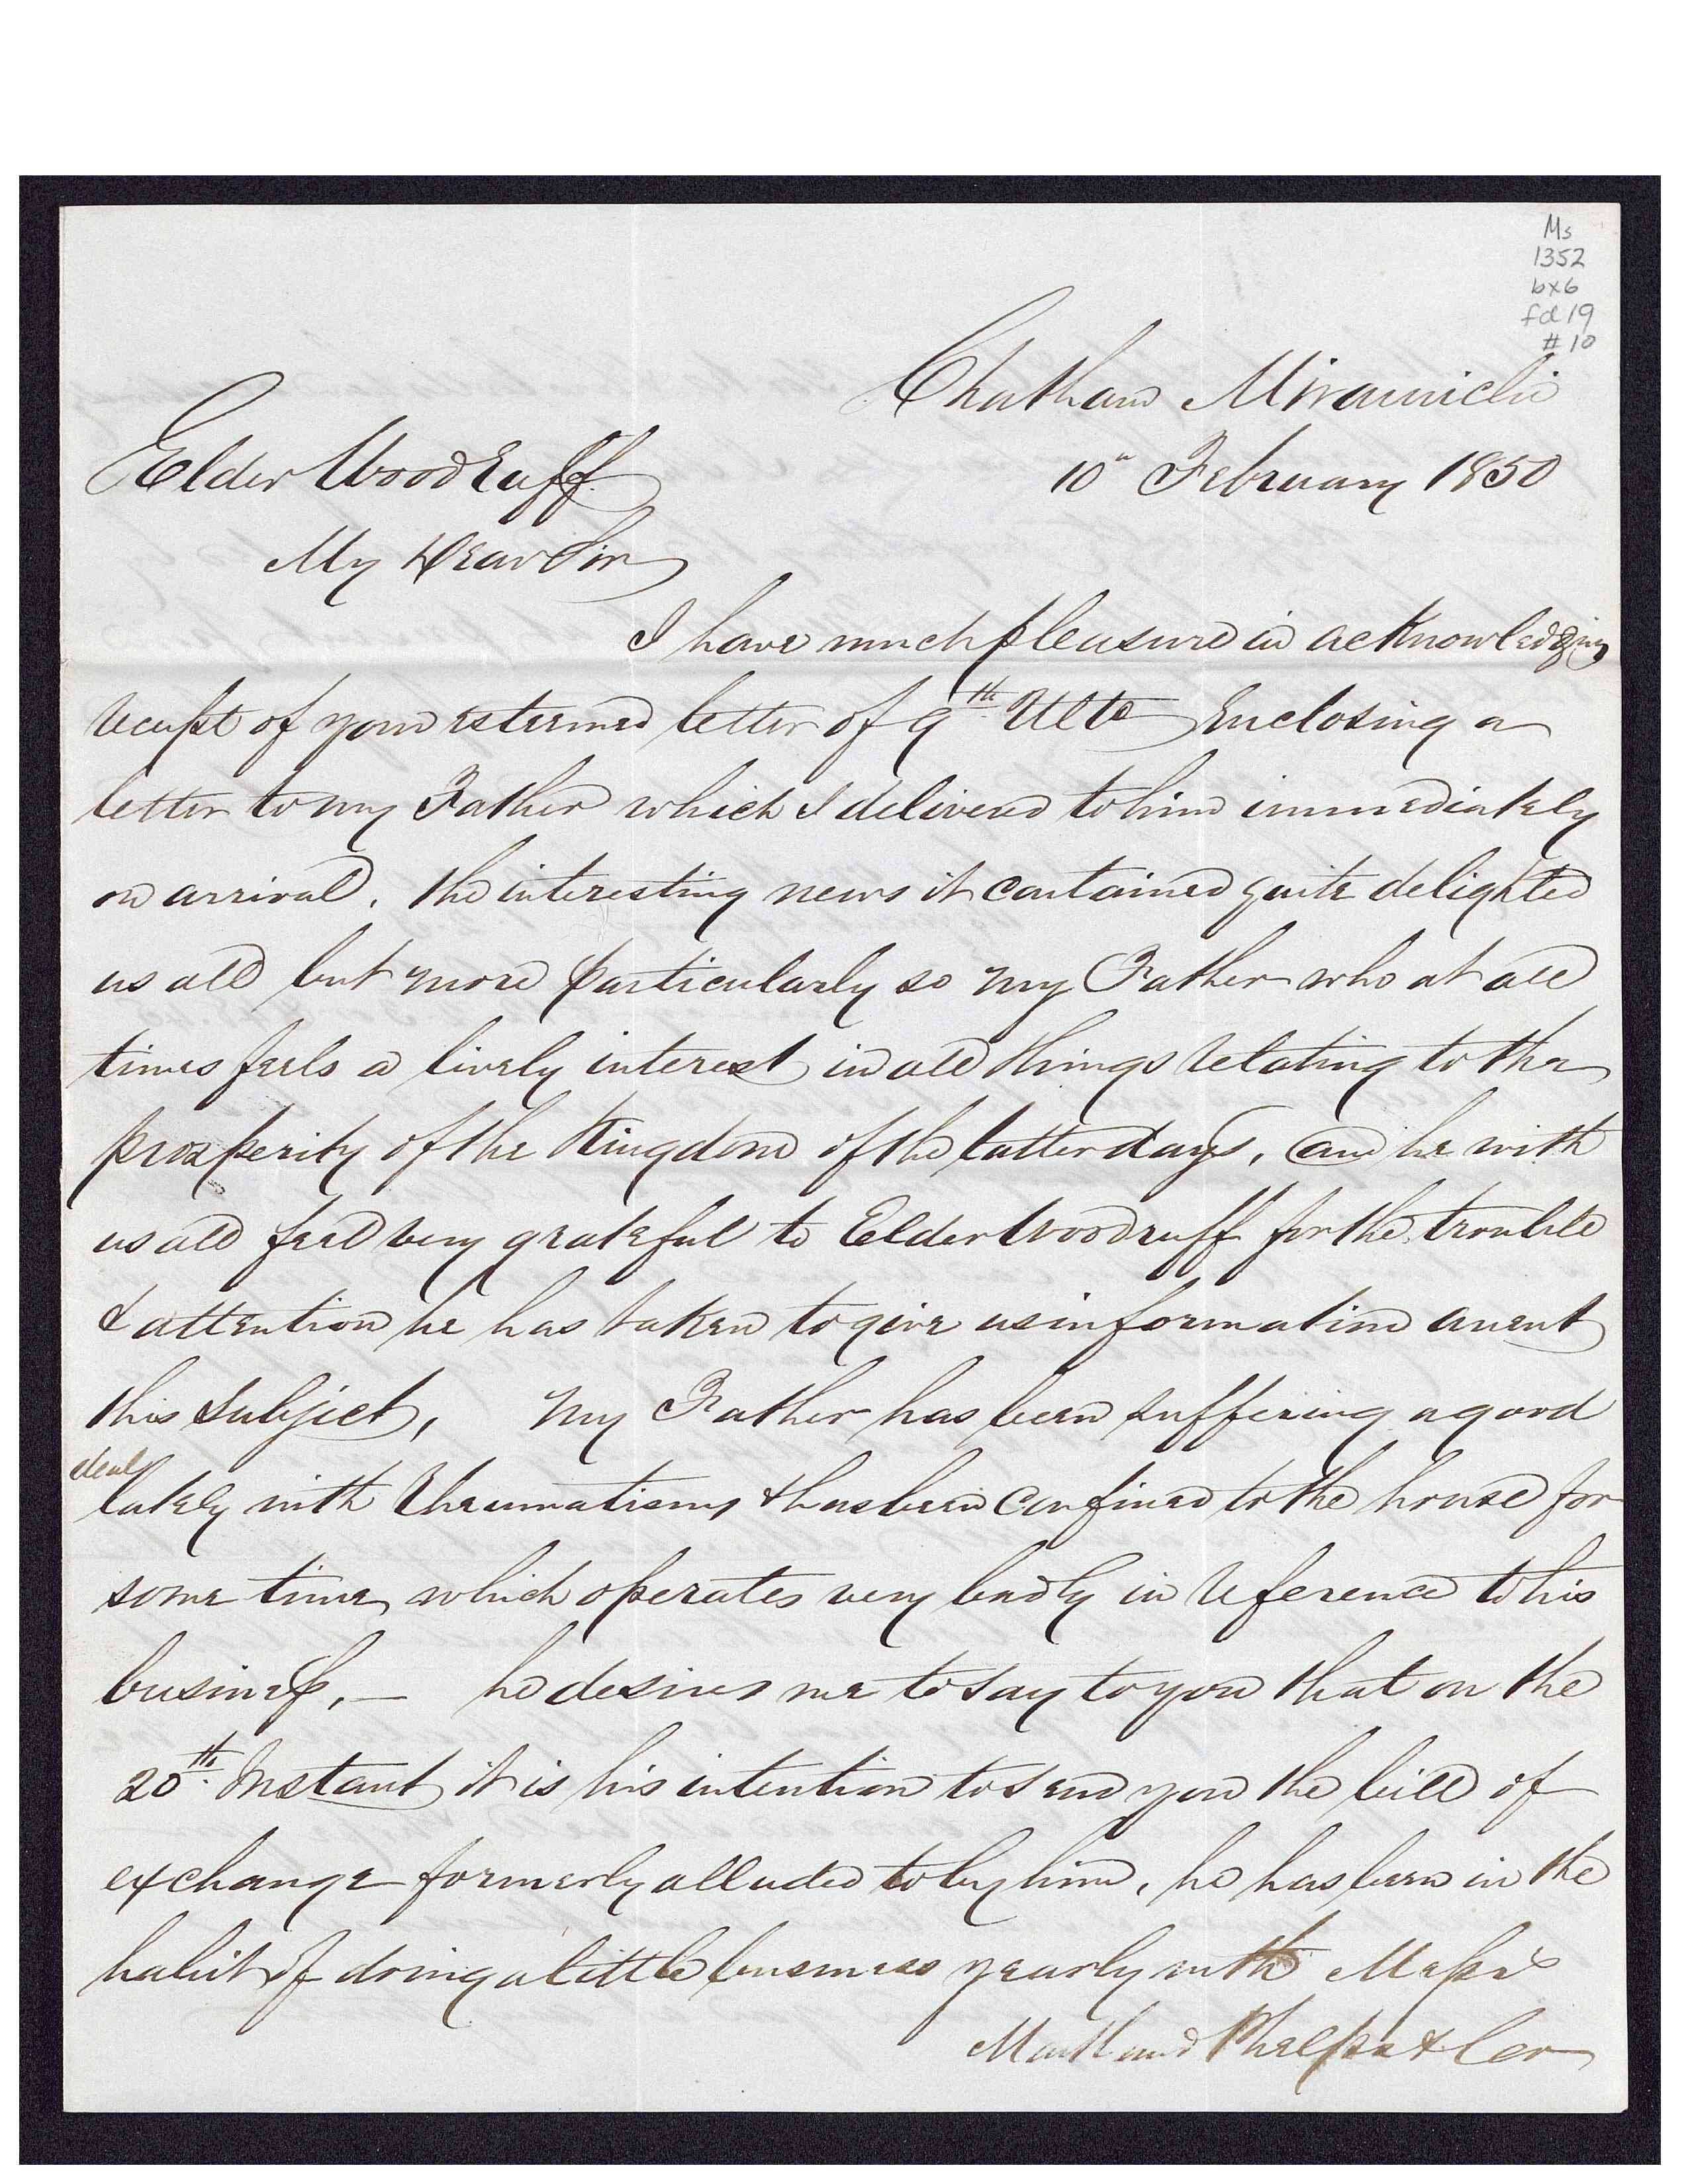 Ms
1352
bx 6
fd 19
# 10
Chatham Miramichi
Elder Woodruff
10th February 1850
My Dear Sir
I have much pleasure in acknowledging
receipt of your esteemed letter of 9th Ulto Enclosing a
letter to my Father which I delivered to him immediately
on arrival. the interesting news it contained quite delighted
us all but more particularly so my Father who at all
times feels a lively interest in all things relating to the
prosperity of the Kingdom of the latter days, and he with
us all feel very grateful to Elder Woodruff for the trouble
& attention he has taken to give us information anent
this subject, My Father has been suffering a good
deal
lately with Rheumatism, & has been confined to the house for
some time, which operates very badly in reference to his
business, — he desires me to say to you that on the
20th. Instant it is his intention to send you the bill of
exchange formerly alluded to by him, he has been in the
habit of doing a little business yearly with Messrs
Maitland Phelps & Co